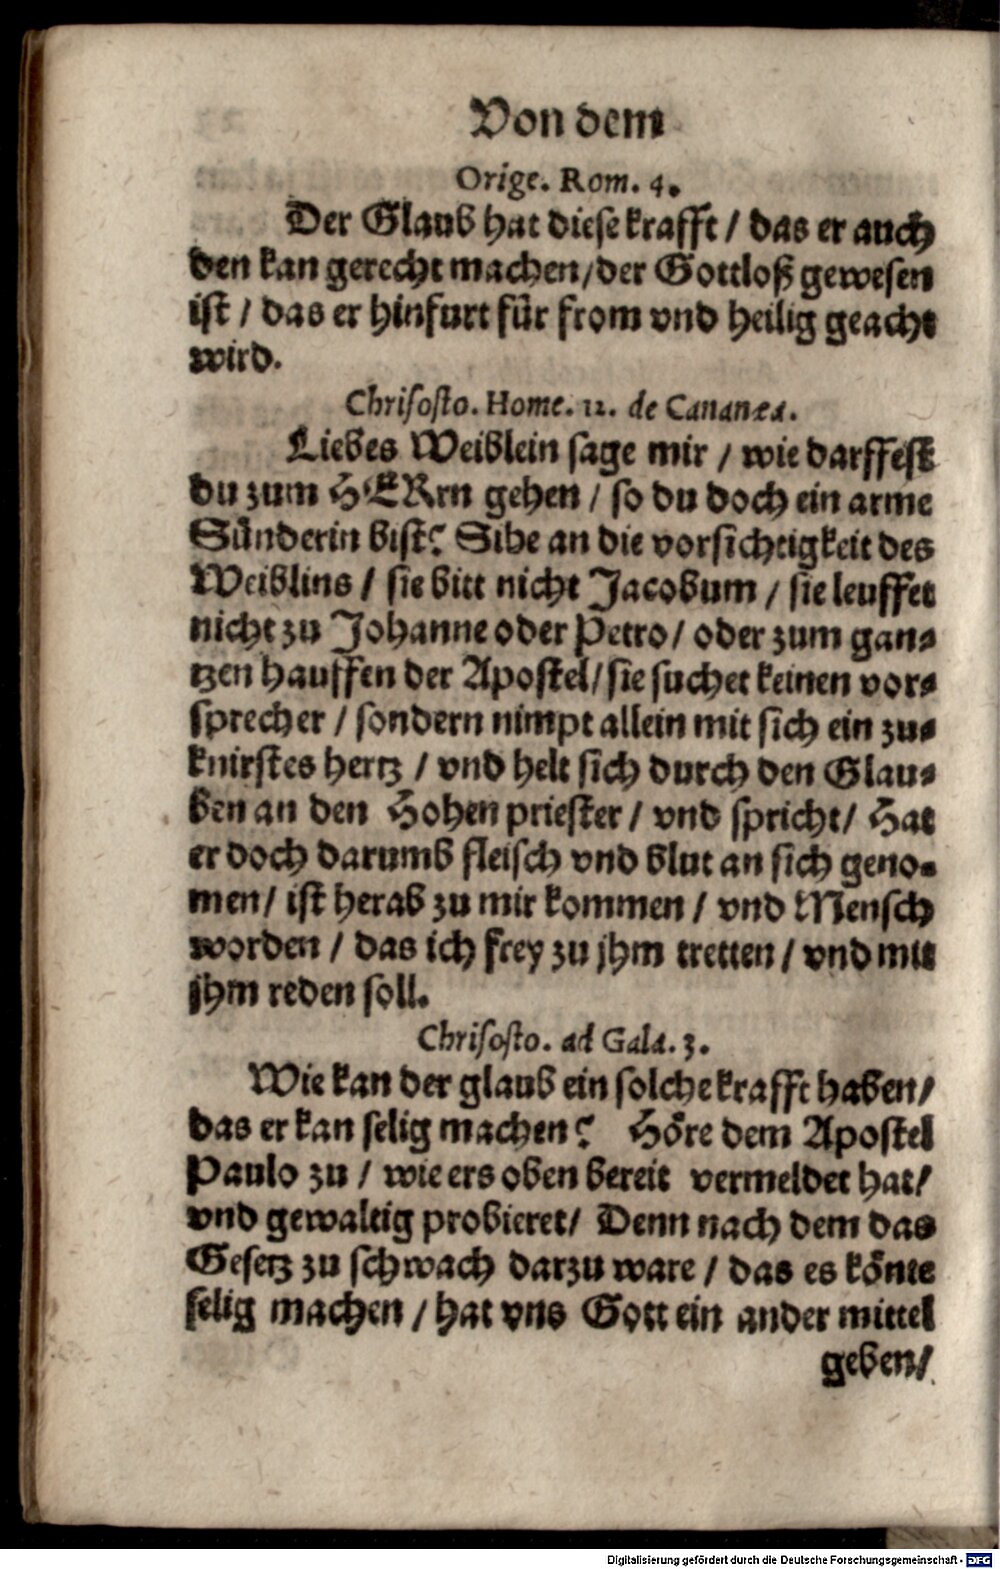 Von dem
Orige. Rom. 4.
Der Glaub hat diese krafft / das er auch
den kan gerecht machen / der Gottloß gewesen
ist / das er hinfurt für from vnd heilig geacht
wird.
Chrisosto. Home. 12. de Cananæa.
Liebes Weiblein sage mir / wie darffest
du zum HERrn gehen / so du doch ein arme
Sünderin bist? Sihe an die vorsichtigkeit des
Weiblins / sie bitt nicht Jacobum / sie leuffet
nicht zu Johanne oder Petro / oder zum gan-
tzen hauffen der Apostel / sie suchet keinen vor-
sprecher / sondern nimpt allein mit sich ein zu-
knirstes hertz / vnd helt sich durch den Glau-
ben an den Hohen priester / vnd spricht / Hat
er doch darumb fleisch vnd blut an sich geno-
men / ist herab zu mir kommen / vnd Mensch
worden / das ich frey zu jhm tretten / vnd mit
jhm reden soll.
Chrisosto. ad Gala. 3.
Wie kan der glaub ein solche krafft haben /
das er kan selig machen? Höre dem Apostel
Paulo zu / wie ers oben bereit vermeldet hat /
vnd gewaltig probieret / Denn nach dem das
Gesetz zu schwach darzu ware / das es könte
selig machen / hat vns Gott ein ander mittel
geben /
Digitalisierung gefördert durch die Deutsche Forschungsgemeinschaft - DFG